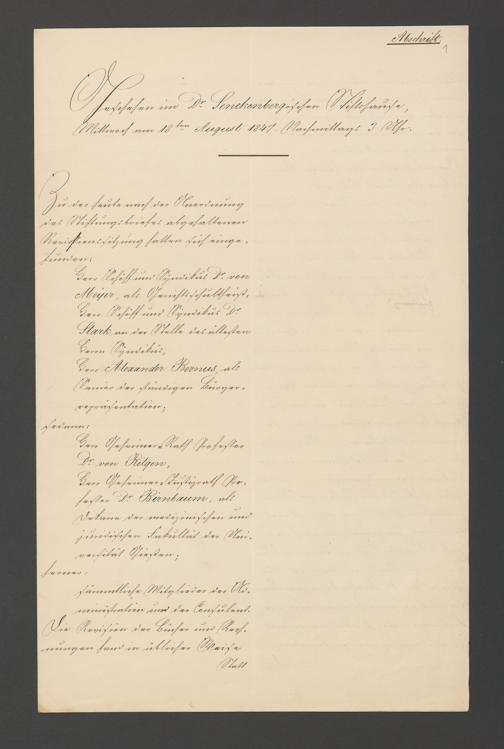 Abschrift
1
Geschehen im Dr. Senckenbergischen Stiftshause,
Mittwoch am 18ten August 1847. Nachmittags 3 Uhr.
Zu der heute nach der Anordnung
des Stiftungsbriefes abgehaltenen
Revisionssitzung hatten sich einge-
funden:
Herr Schöff und Syndikus Dr. von
Meyer, als Gerichtsschultheiß,
Herr Schöff und Syndikus Dr.
Stark an der Stelle des ältesten
Herrn Syndikus,
Herr Alexander Bernus, als
Senior der ständigen Bürger-
repräsentation;
ferner:
Herr Geheimer Rath Professor
Dr. von Ritgen,
Herr Geheimer Justizrath Pro-
fessor Dr. Birnbaum, als
Dekane der medizinischen und
juridischen Fakultät der Uni-
versität Giessen;
ferner:
sämmtliche Mitglieder der Ad-
ministration und der Consulent.
Die Revision der Bücher und Rech-
nungen fand in üblicher Weise
Statt